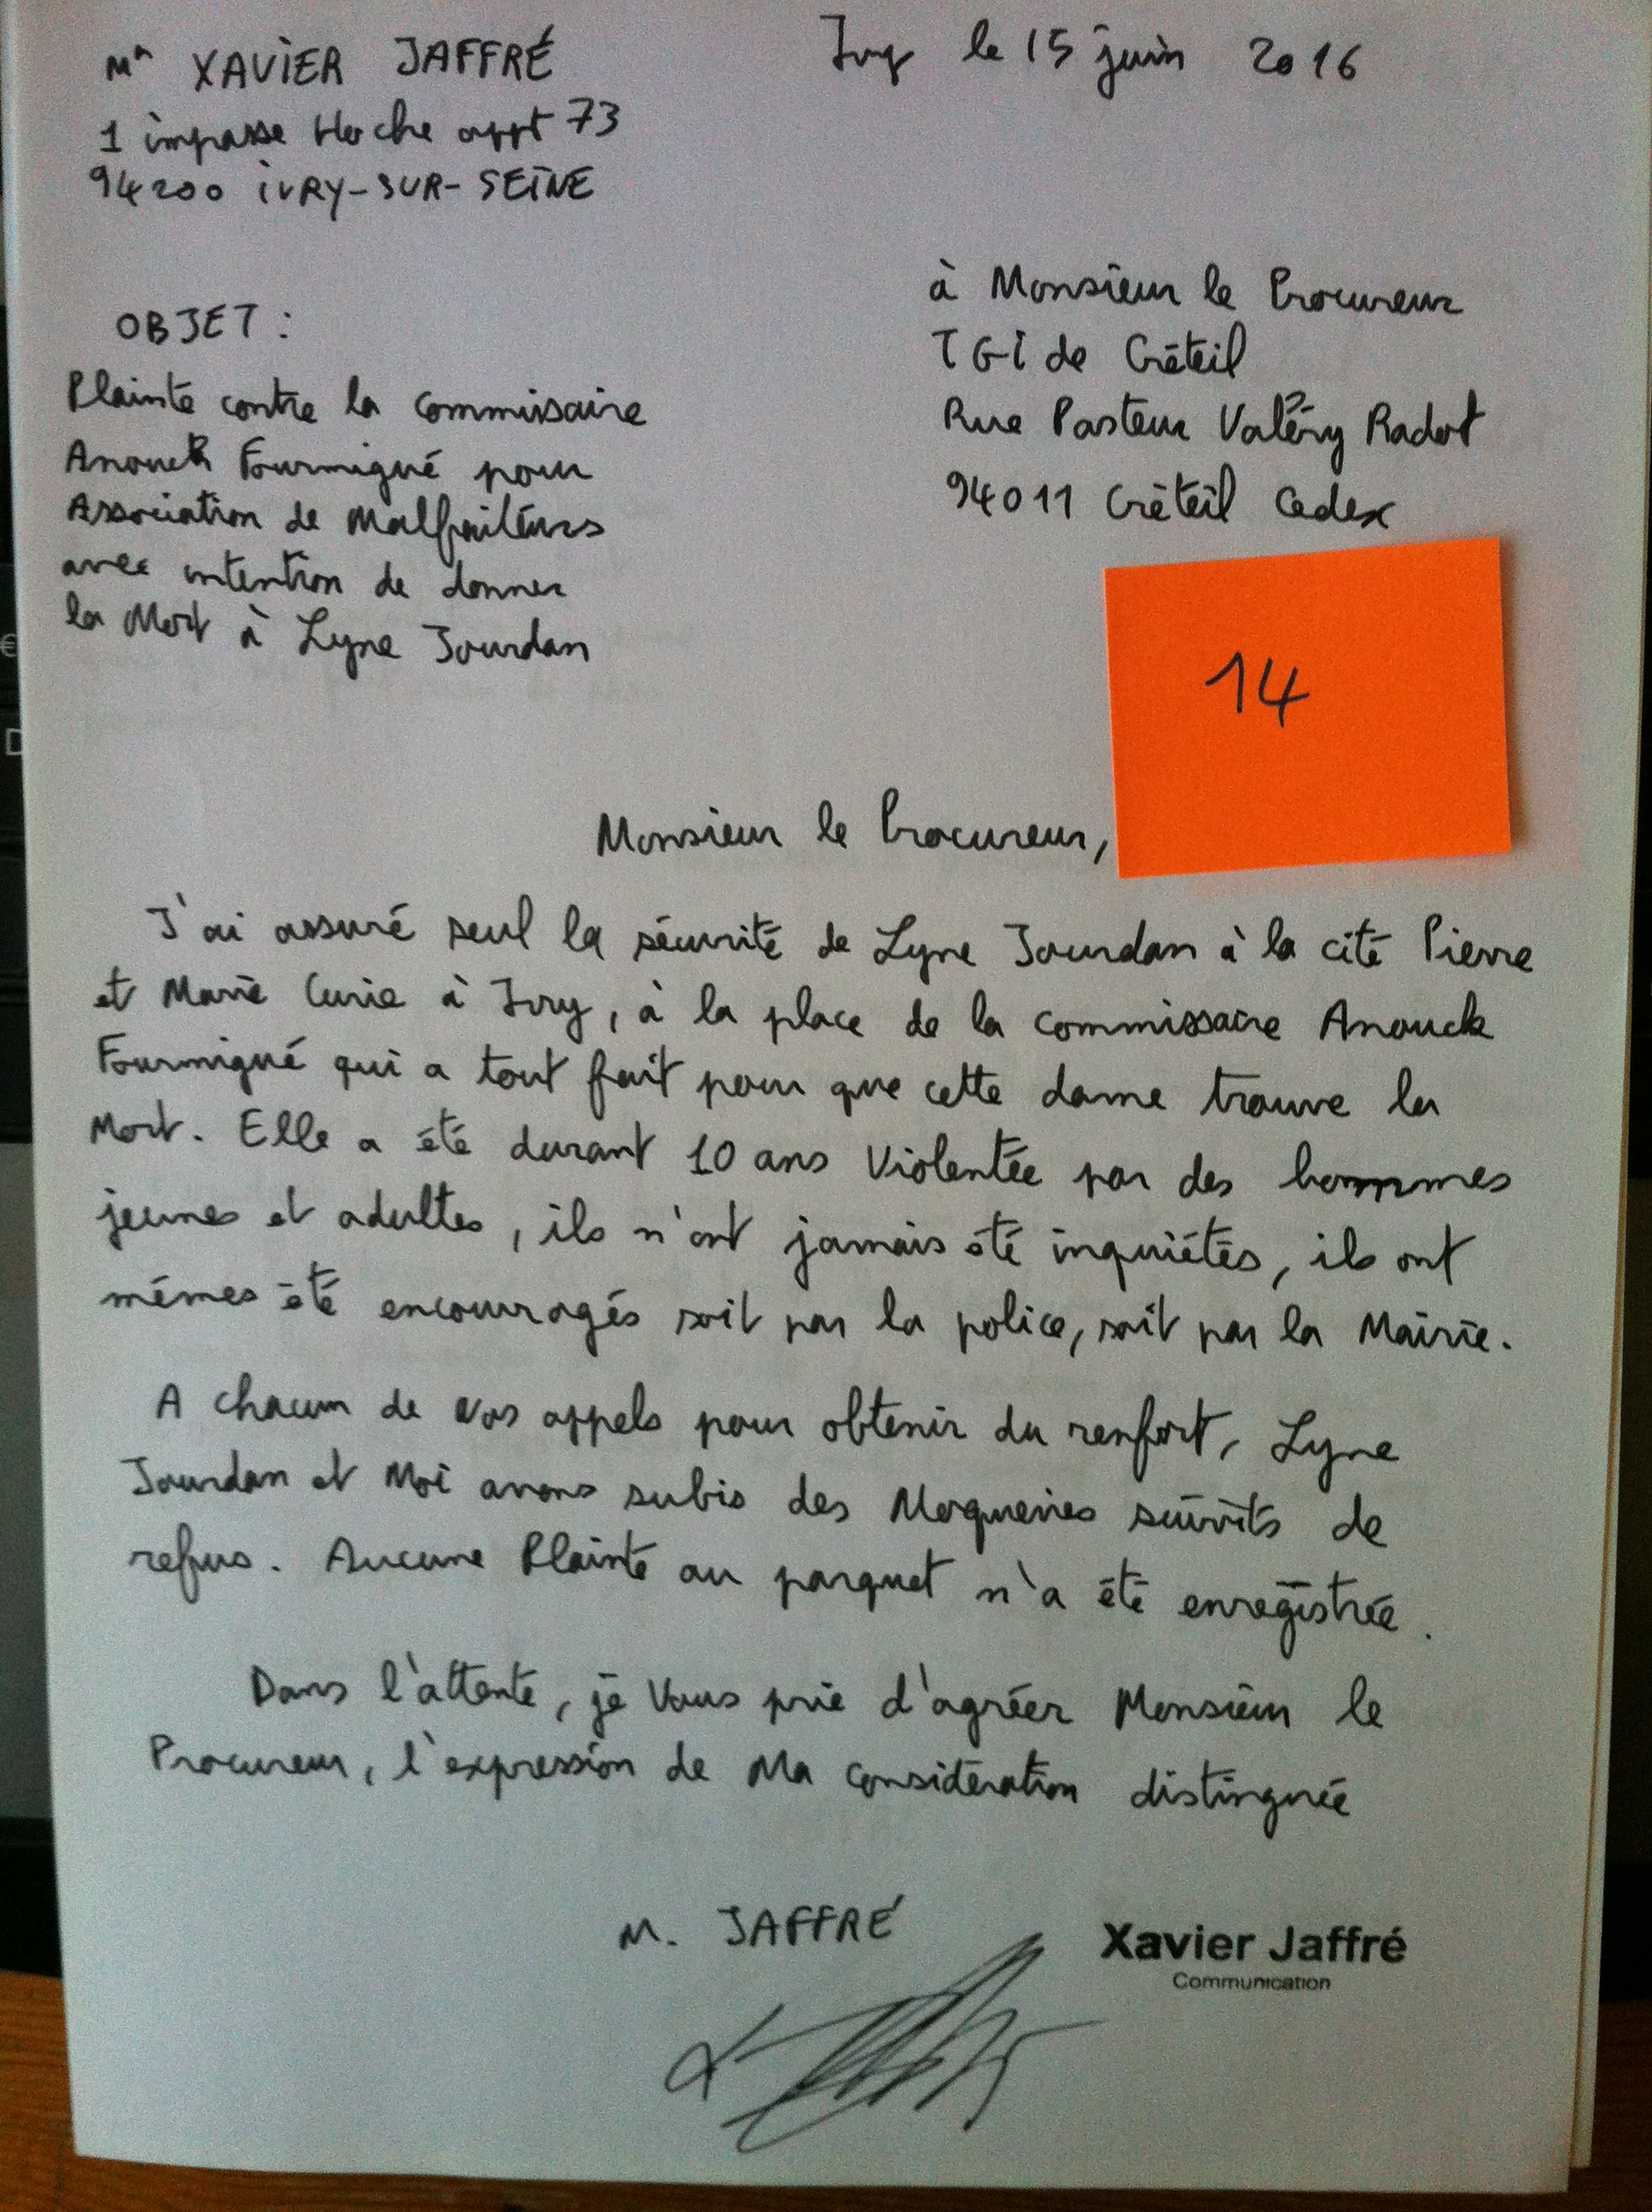 Mr XAVIER JAFFRÉ
1 impasse Hoche appt 73
94200 IVRY-SUR-SEINE
Ivry le 15 juin 2016
à Monsieur le Procureur
TGI de Créteil
Rue Pasteur Valéry Radot
94011 Créteil Cedex
OBJET :
Plainte contre la commissaire
Anouck Fourmigué pour
Association de Malfaiteurs
avec intention de donner
la Mort à Lyne Jourdan
14
Monsieur le Procureur,
J'ai assuré seul la sécurité de Lyne Jourdan à la cité Pierre
et Marie Curie à Ivry, à la place de la commissaire Anouck
Fourmigué qui a tout fait pour que cette dame trouve la
Mort. Elle a été durant 10 ans Violentée par des hommes
jeunes et adultes, ils n'ont jamais été inquiétés, ils ont
mêmes été encouragés soit par la police, soit par la Mairie.
A chacun de nos appels pour obtenir du renfort, Lyne
Jourdan et Moi avons subis des Moqueries suivits de
refus. Aucune Plainte au parquet n'a été enregistrée.
Dans l'attente, je Vous prie d'agréer Monsieur le
Procureur, l'expression de Ma considération distinguée
M. JAFFRÉ
Xavier Jaffré
Communication